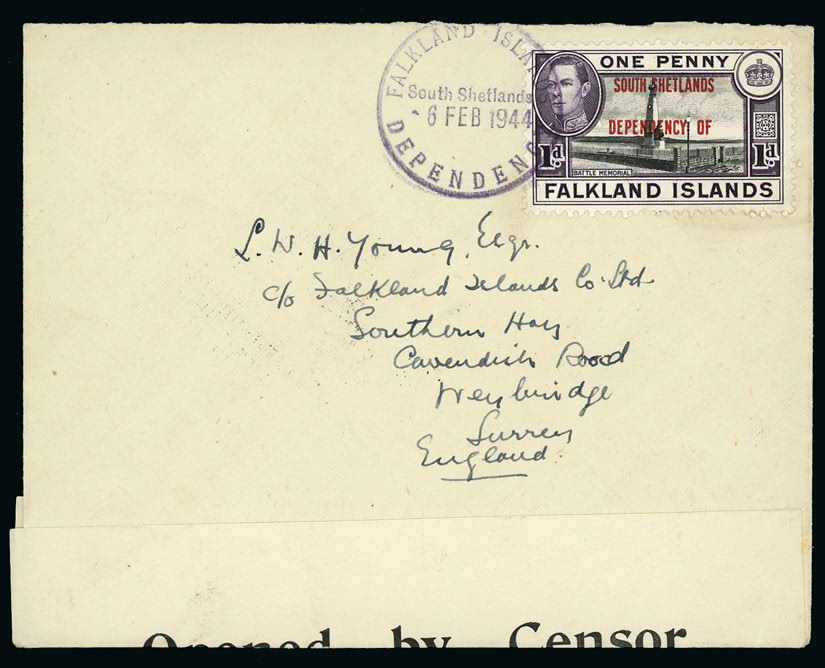 FALKLAND ISLA
South Shetlands
6 FEB 1944
DEPENDENC
ONE PENNY
SOUTH SHETLANDS
DEPENDENCY OF
1d
1d
BATTLE MEMORIAL
FALKLAND ISLANDS
L. W. H. Young, Esqr.
c/o Falkland Islands Co. Ltd.
Southern Hay
Cavendish Road
Weybridge
Surrey
England.
Opened by Censor